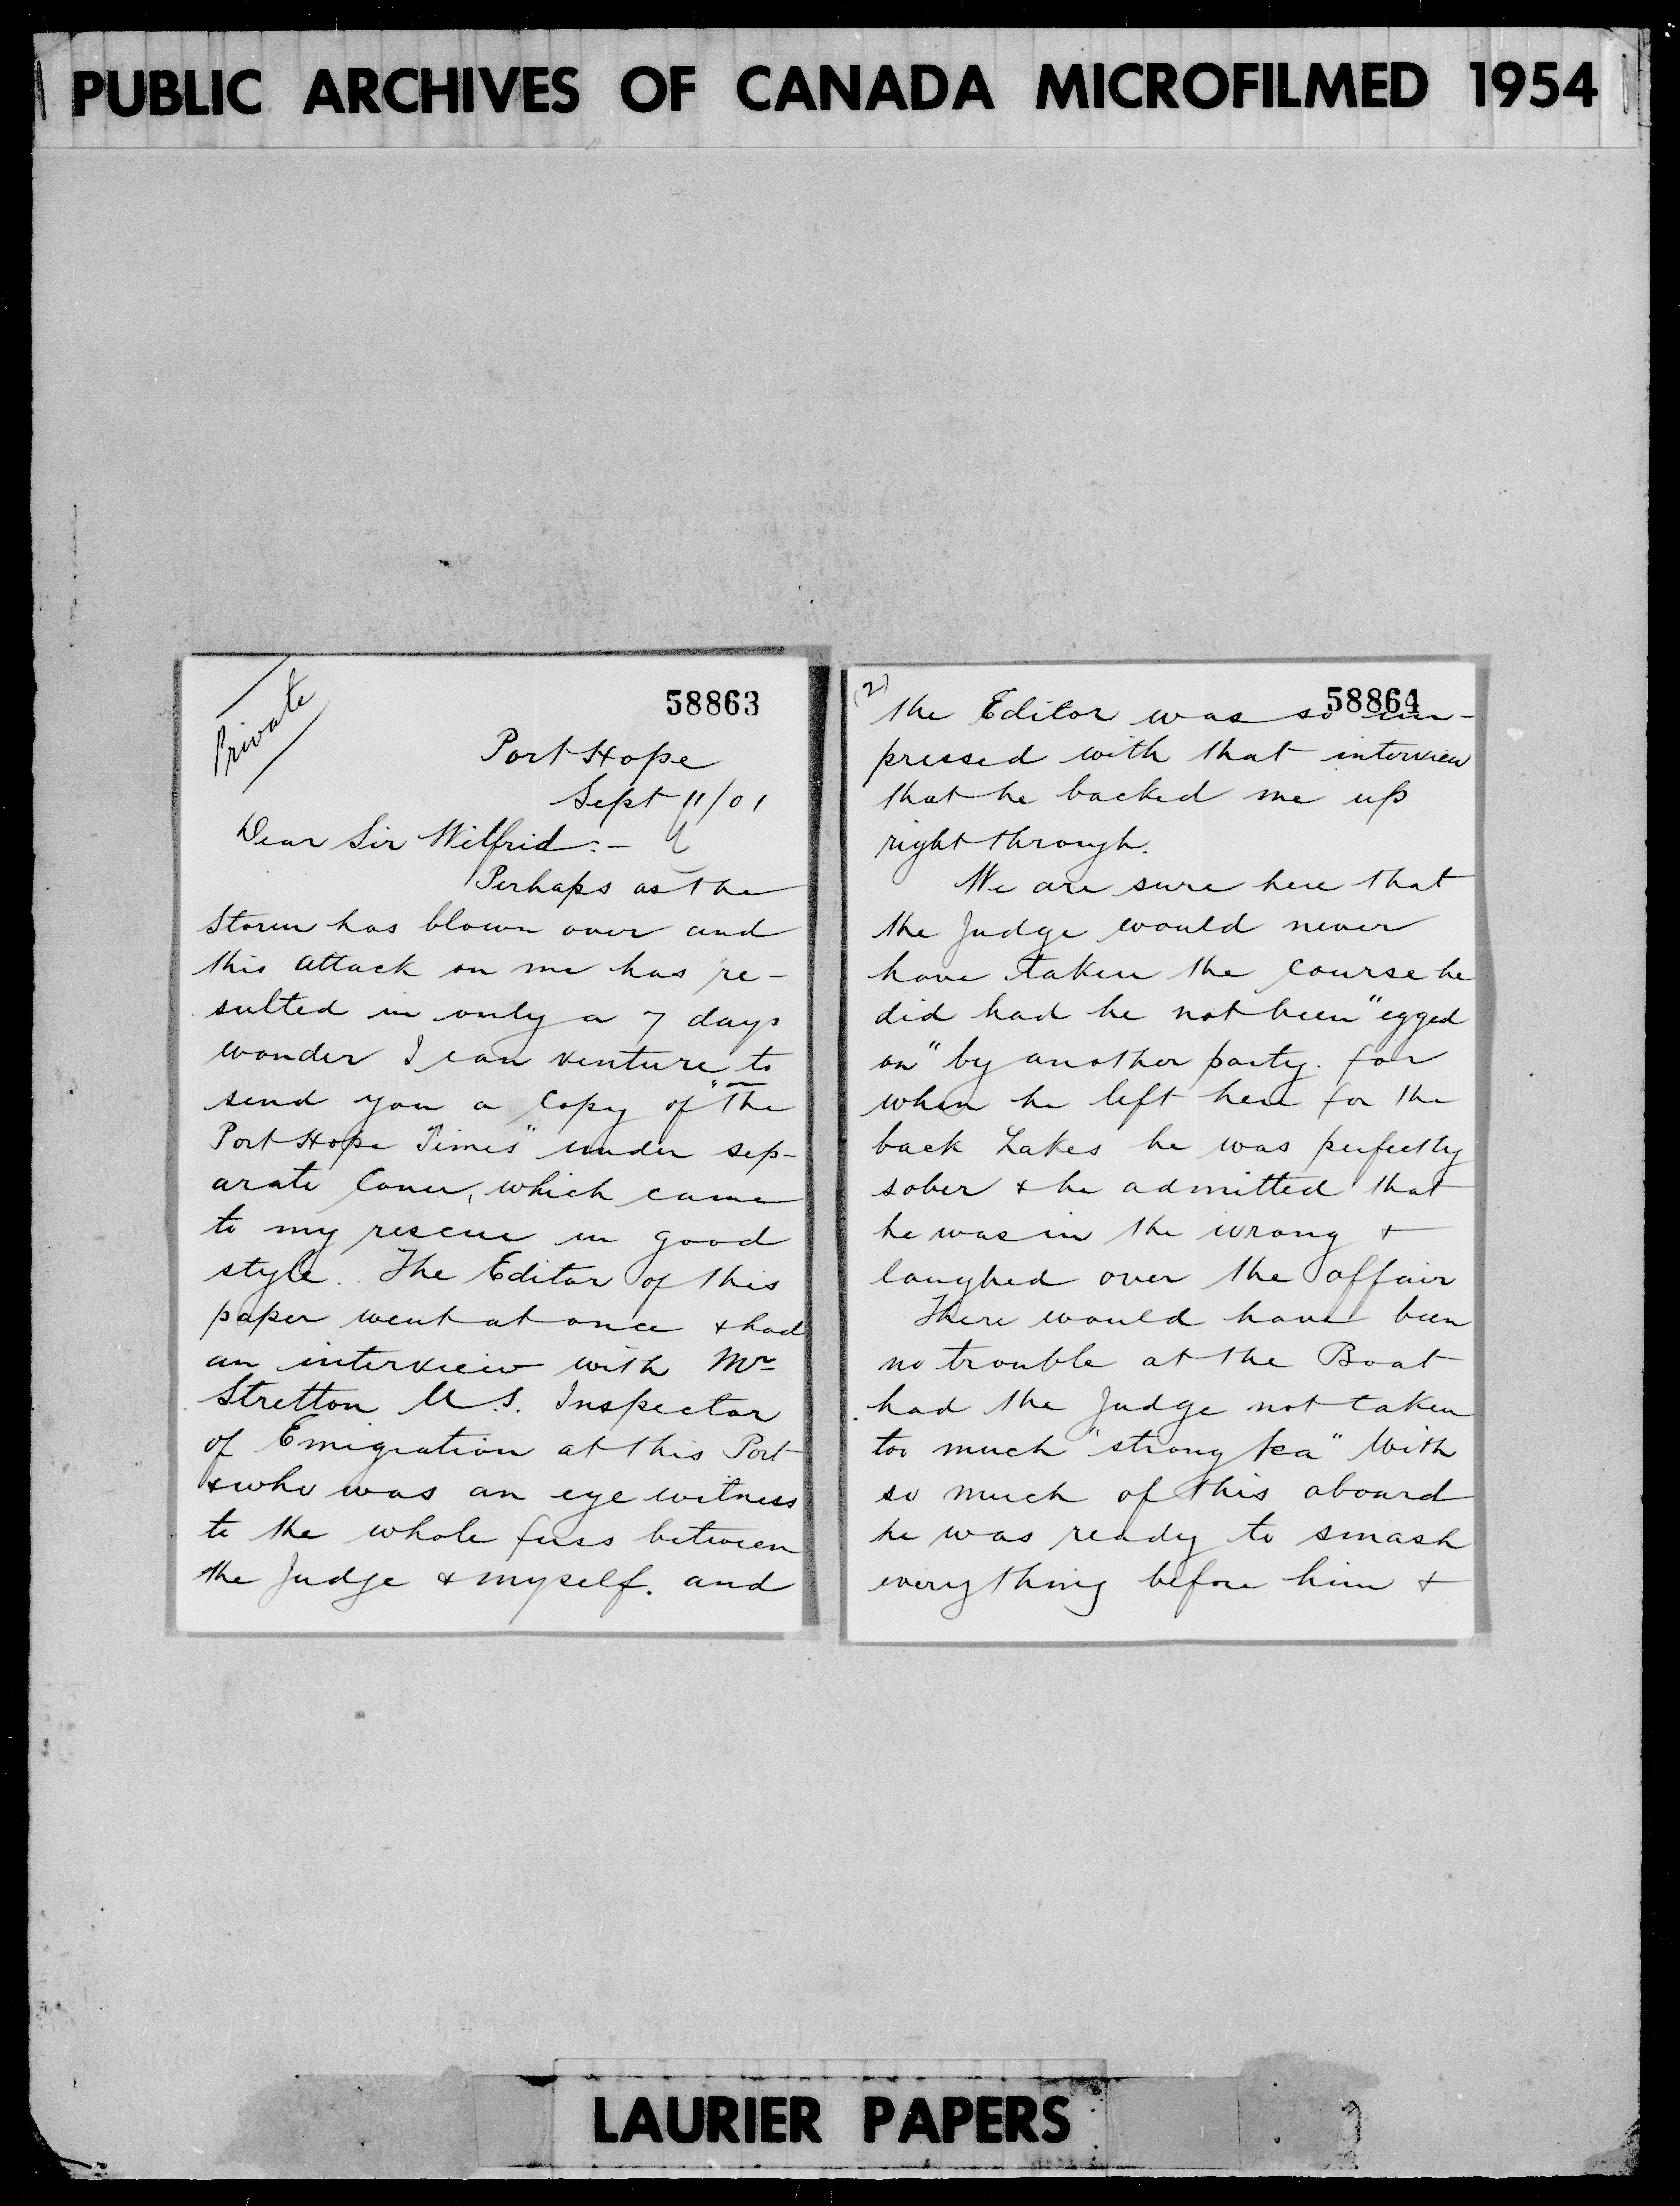 PUBLIC ARCHIVES OF CANADA MICROFILMED 1954
Private
58863
Port Hope
Sept 11/01
Dear Sir Wilfrid:-
Perhaps as the
storm has blown over and
this attack on me has re-
sulted in only a 7 days
wonder I can venture to
send you a Copy of "The
Port Hope Times" under sep-
arate Cover, which came
to my rescue in good
style. The Editor of this
paper went at once & had
an interview with Mr
Stretton U.S. Inspector
of Emigration at this Port
& who was an eye witness
to the whole fuss between
the Judge & myself. and
(2)
58864
the Editor was so im-
pressed with that interview
that he backed me up
right through.
We are sure here that
the Judge would never
have taken the course he
did had he not been "egged
on" by another party. for
when he left here for the
back Lakes he was perfectly
sober & he admitted that
he was in the wrong &
laughed over the affair
There would have been
no trouble at the Boat
had the Judge not taken
too much "strong tea" With
so much of this aboard
he was ready to smash
everything before him &
LAURIER PAPERS